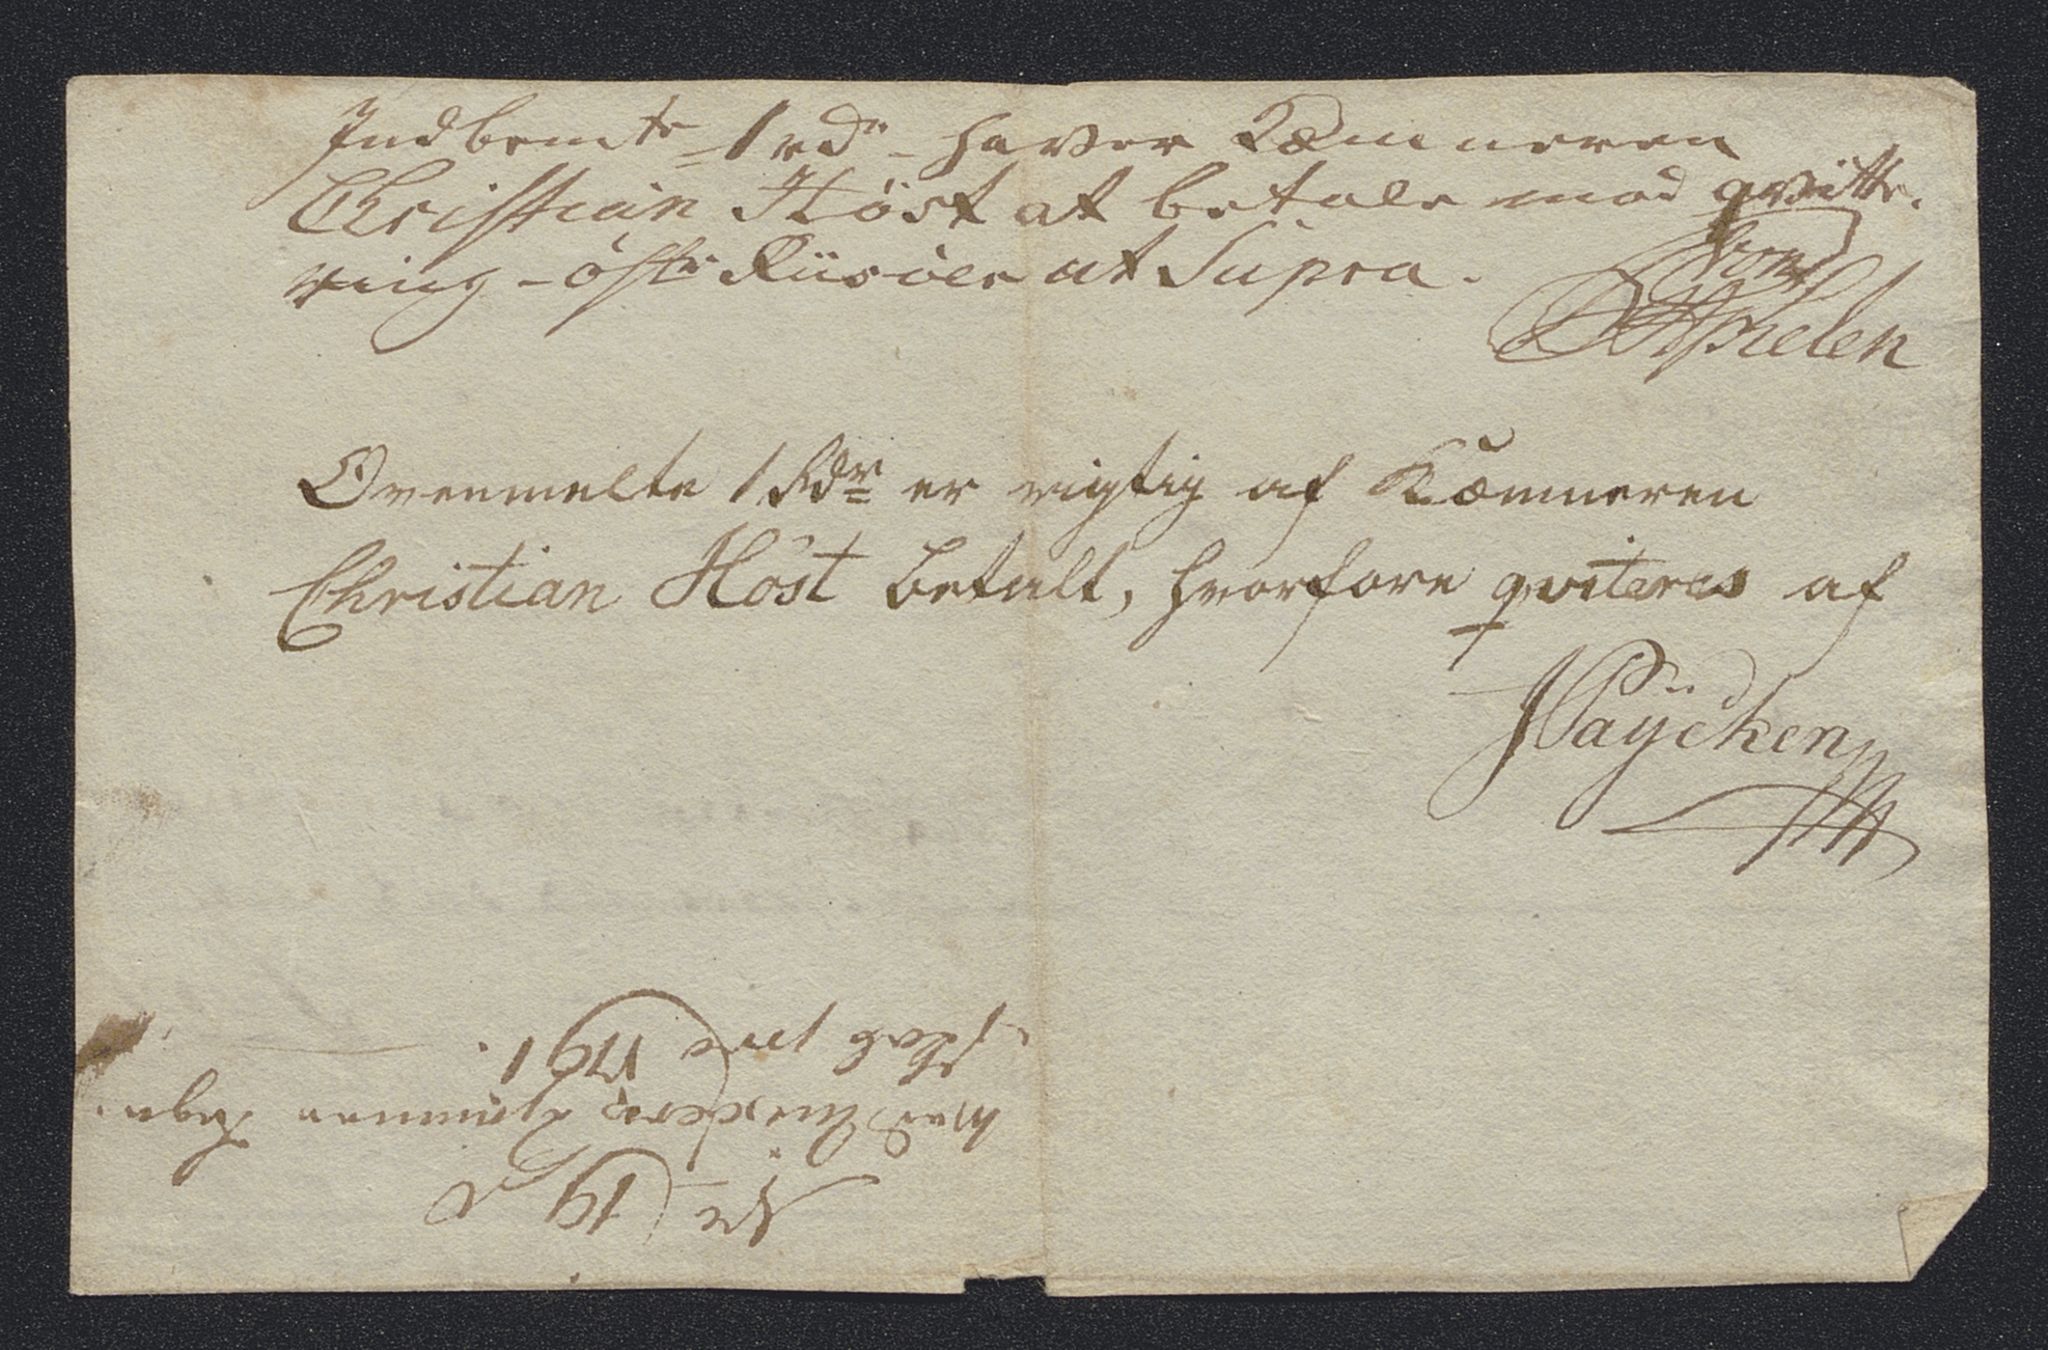 Indbemte 1 rdr haver Kæmneren
Christian Höst at betale mod qvitte-
ring - öster Riisöer ut Supra.
Ovenmelte 1 Rdr er rigtig af Kæmneren
Christian Höst betalt, hvorfore qviteres af
JPaÿcken
No 19
ved
skab pro 1791.